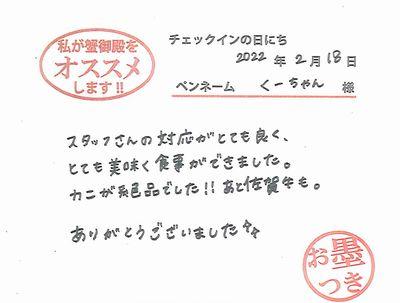 私が蟹御殿を
オススメ
します!!
チェックインの日にち
2022 年 2 月 18 日
ペンネーム くーちゃん 様
スタッフさんの対応がとても良く、
とても美味く食事ができました。
カニが絶品でした!! あと佐賀牛も。
ありがとうございました
お墨
つき